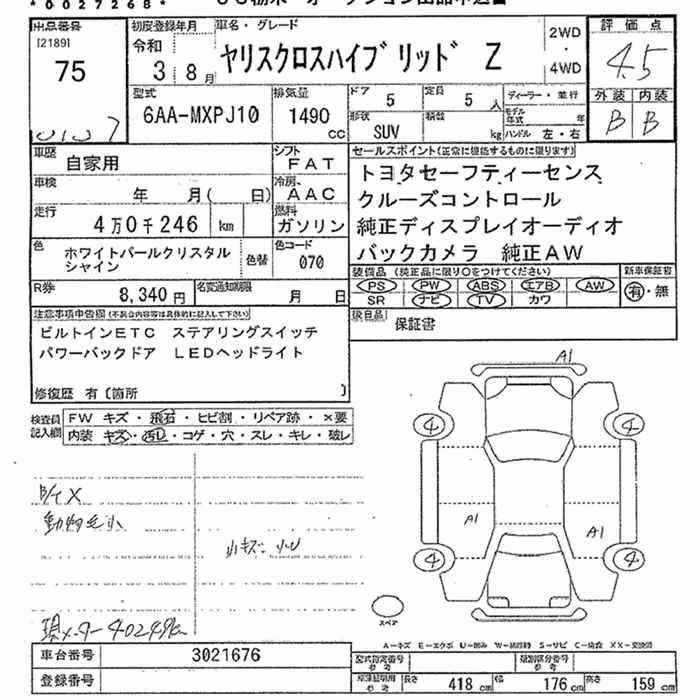 *0027268*
出品番号
[2189]
75
初度登録年月
令和
3 8月
車名・グレード
ヤリスクロスハイブリッド Z
2WD
・
4WD
評価点
4.5
型式
6AA-MXPJ10
排気量
1490
CC
ドア
5
定員
5 人
形状
SUV
積載
kg
ディーラー・並行
モデル年式 年
ハンドル 左・右
外装 内装
B B
車歴
自家用
シフト
FAT
車検
年 月( 日)
冷房
AAC
走行
4万0千246 km
燃料
ガソリン
色
ホワイトパールクリスタル
シャイン
色替
色コード
070
R券
8,340円
名変通知期限
月 日
セールスポイント(正常に機能するものに限ります)
トヨタセーフティーセンス
クルーズコントロール
純正ディスプレイオーディオ
バックカメラ 純正AW
装備品 (純正品に限り○をつけてください)
PS PW ABS エアB AW
SR ナビ TV カワ
新車保証書
有・無
後日品
保証書
注意事項申告欄(不具合内容等は具体的に記入して下さい)
ビルトインETC ステアリングスイッチ
パワーバックドア LEDヘッドライト
修復歴 有 (箇所 )
検査員
記入欄
FW キズ・飛石・ヒビ割・リペア跡・×要
内装 キズ・汚れ・コゲ・穴・スレ・キレ・破レ
動物毛小
小キズ 小U
現メーター40249km
A1
4
4
A1
A1
4
4
スペア
A-キズ E-エクボ U-凹み W-補修跡 S-サビ C-腐食 XX-交換済
車台番号
3021676
登録番号
型式指定番号
参考
類別区分番号
参考
参考
長さ
418 cm
幅
176 cm
高さ
159 cm